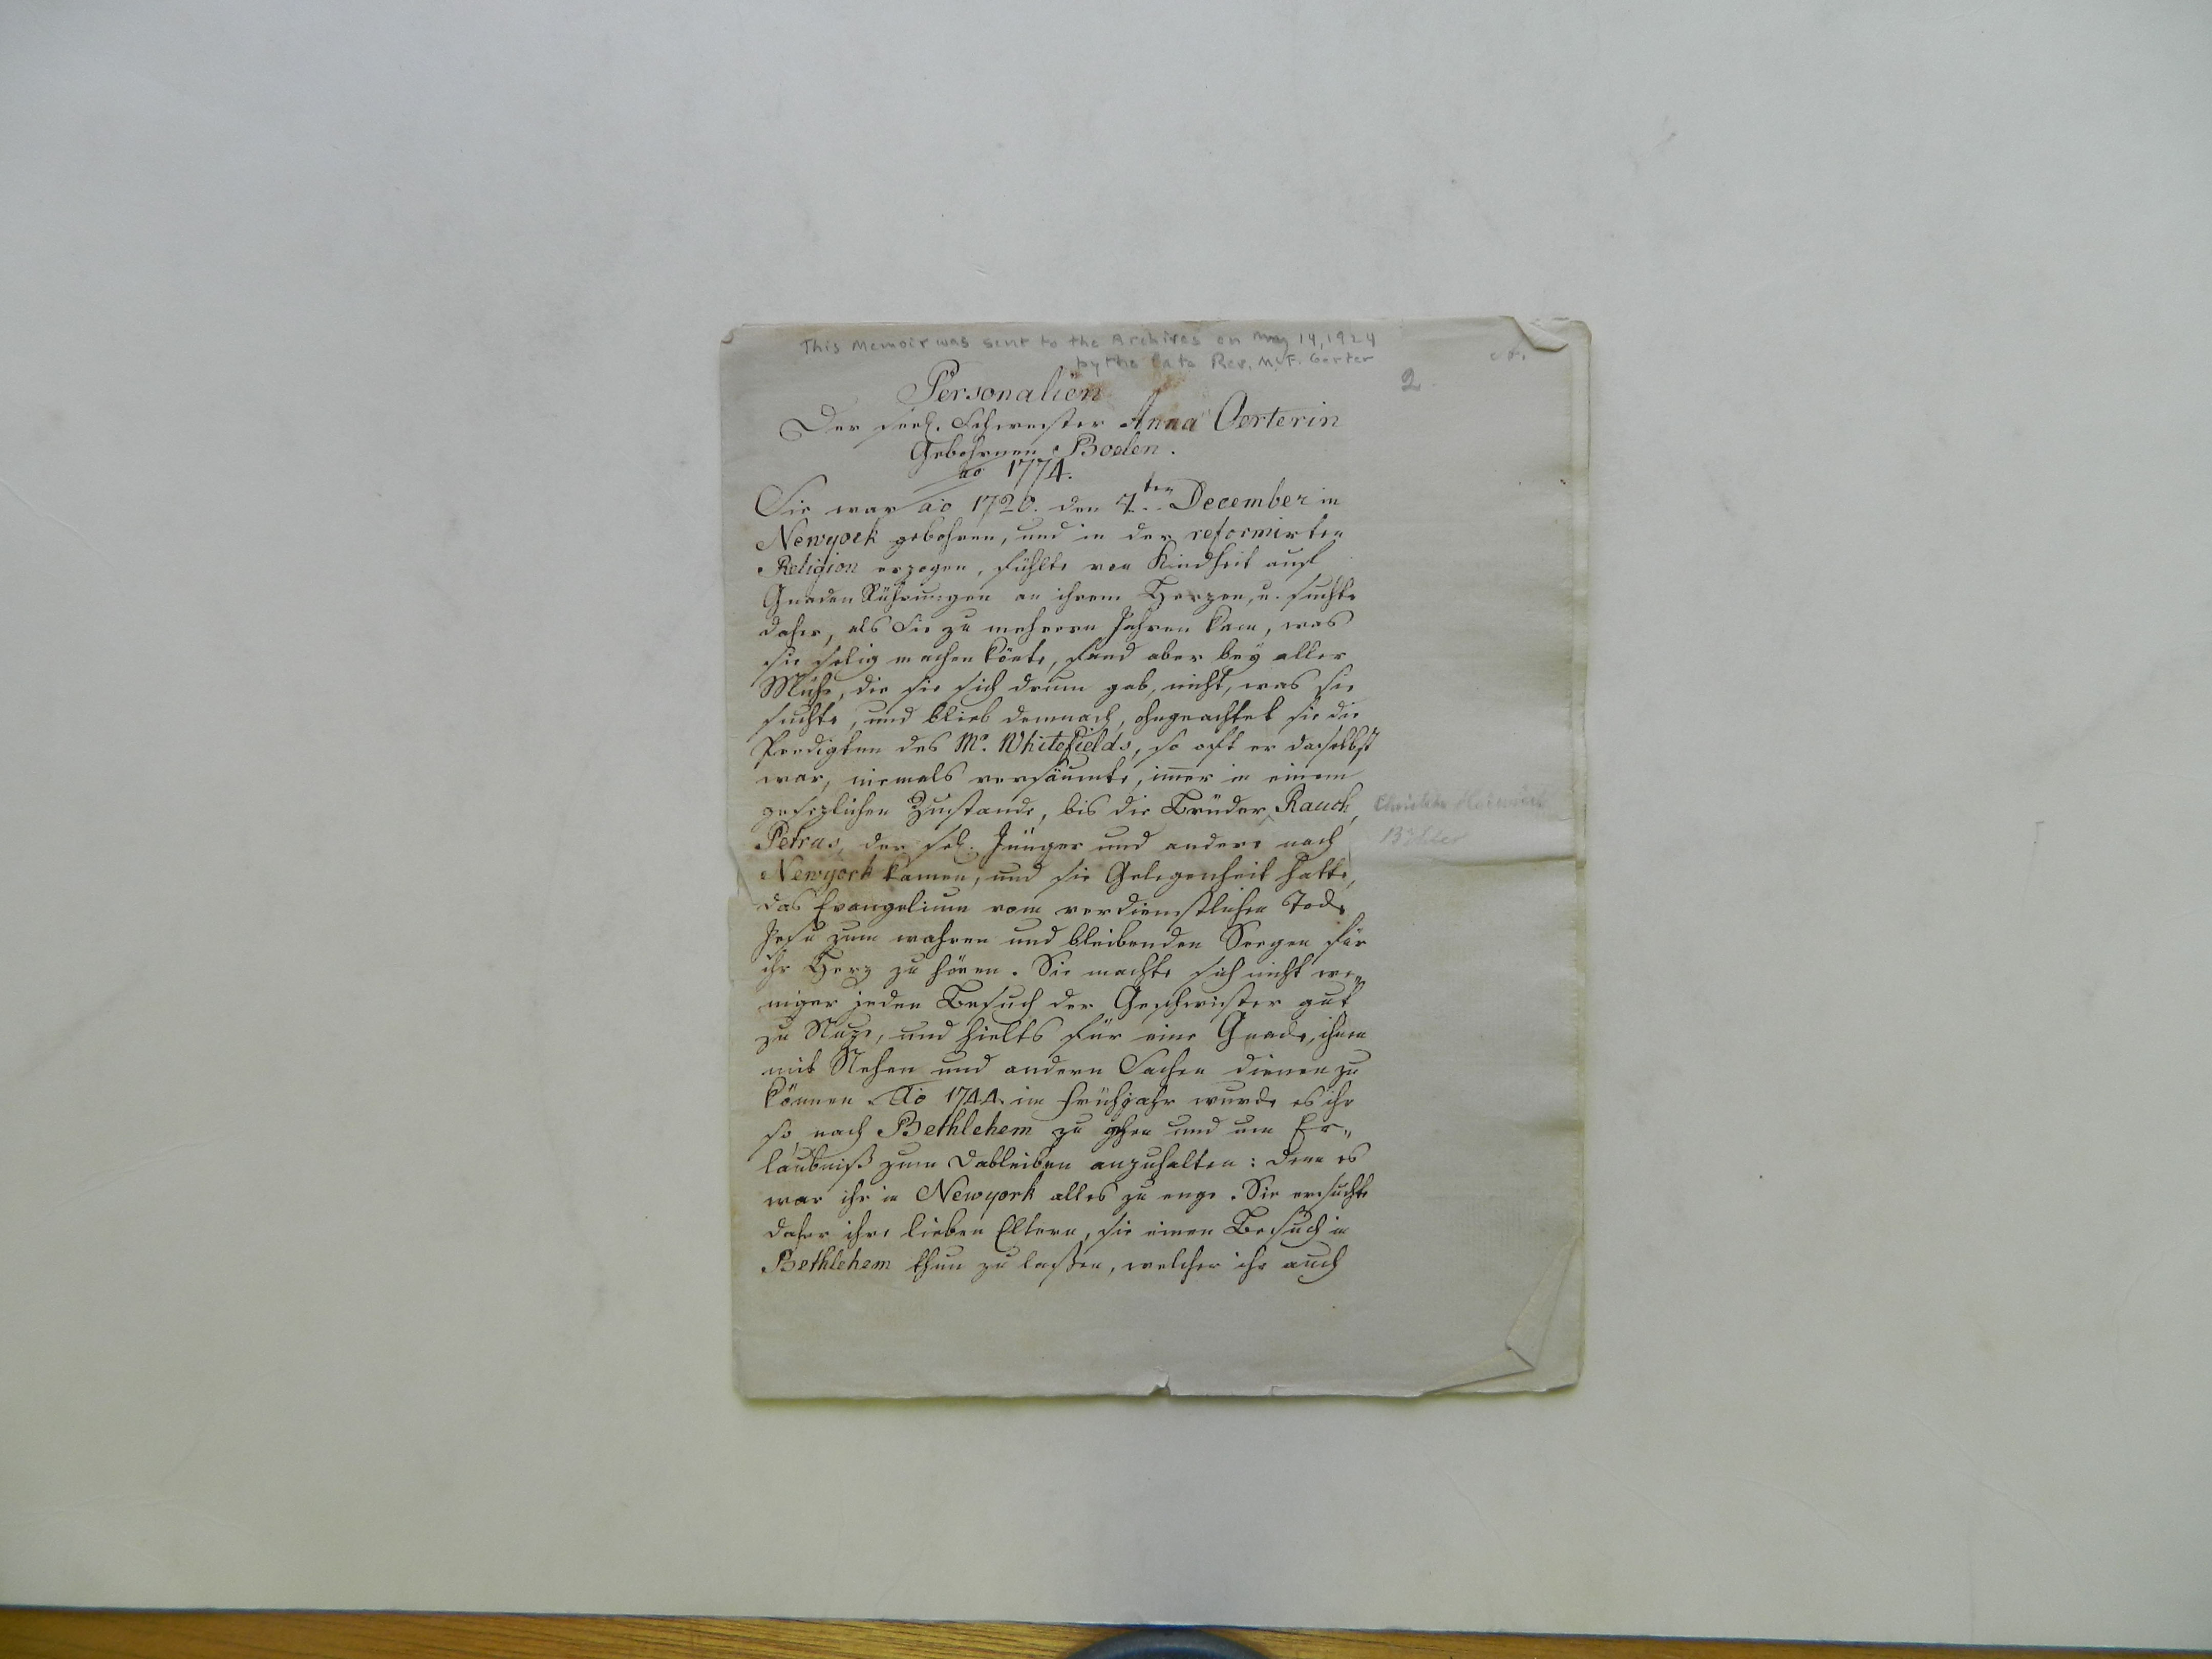 This Memoir was sent to the Archives on May 14, 1924
by the late Rev. M. F. Oerter
2
Personalien
Der seel. Schwester Anna Oerterin
Gebohrnen Boden.
ao 1774.
Sie war ao 1720. den 7.ten December in
Newyork gebohren, und in der reformirten
Religion erzogen, fühlte von Kindheit auf
Gnaden Rührungen an ihrem Herzen, u. suchte
daher, als Sie zu mehrern Jahren kam, was
sie selig machen könte, fand aber bey aller
Mühe, die sie sich drum gab, nicht, was sie
suchte, und blieb demnach, ohngeachtet sie die
Predigten des Mr. Whitefields, so oft er daselbst
war, niemals versäumte, imer in einem
gesezlichen Zustande, bis die Brüder Rauch, Christian
Petrus, der sel. Jünger und andere nach Böhler
Newyork kamen, und sie Gelegenheit hatte,
das Evangelium vom verdienstlichen Tode
Jesu zum wahren und bleibenden Seegen für
ihr Herz zu hören. Sie machte sich nicht we„
niger jeden Besuch der Geschwister gut
zu Nuze, und hielts für eine Gnade, ihnen
mit Nehen und andern Sachen dienen zu
können. Ao 1744. im Frühjahr wurde es ihr
so, nach Bethlehem zu gehen und um Er„
laubniß zum dableiben anzuhalten: denn es
war ihr in Newyork alles zu enge. Sie ersuchte
daher ihre lieben Eltern, sie einen Besuch in
Bethlehem thun zu laßen, welcher ihr auch